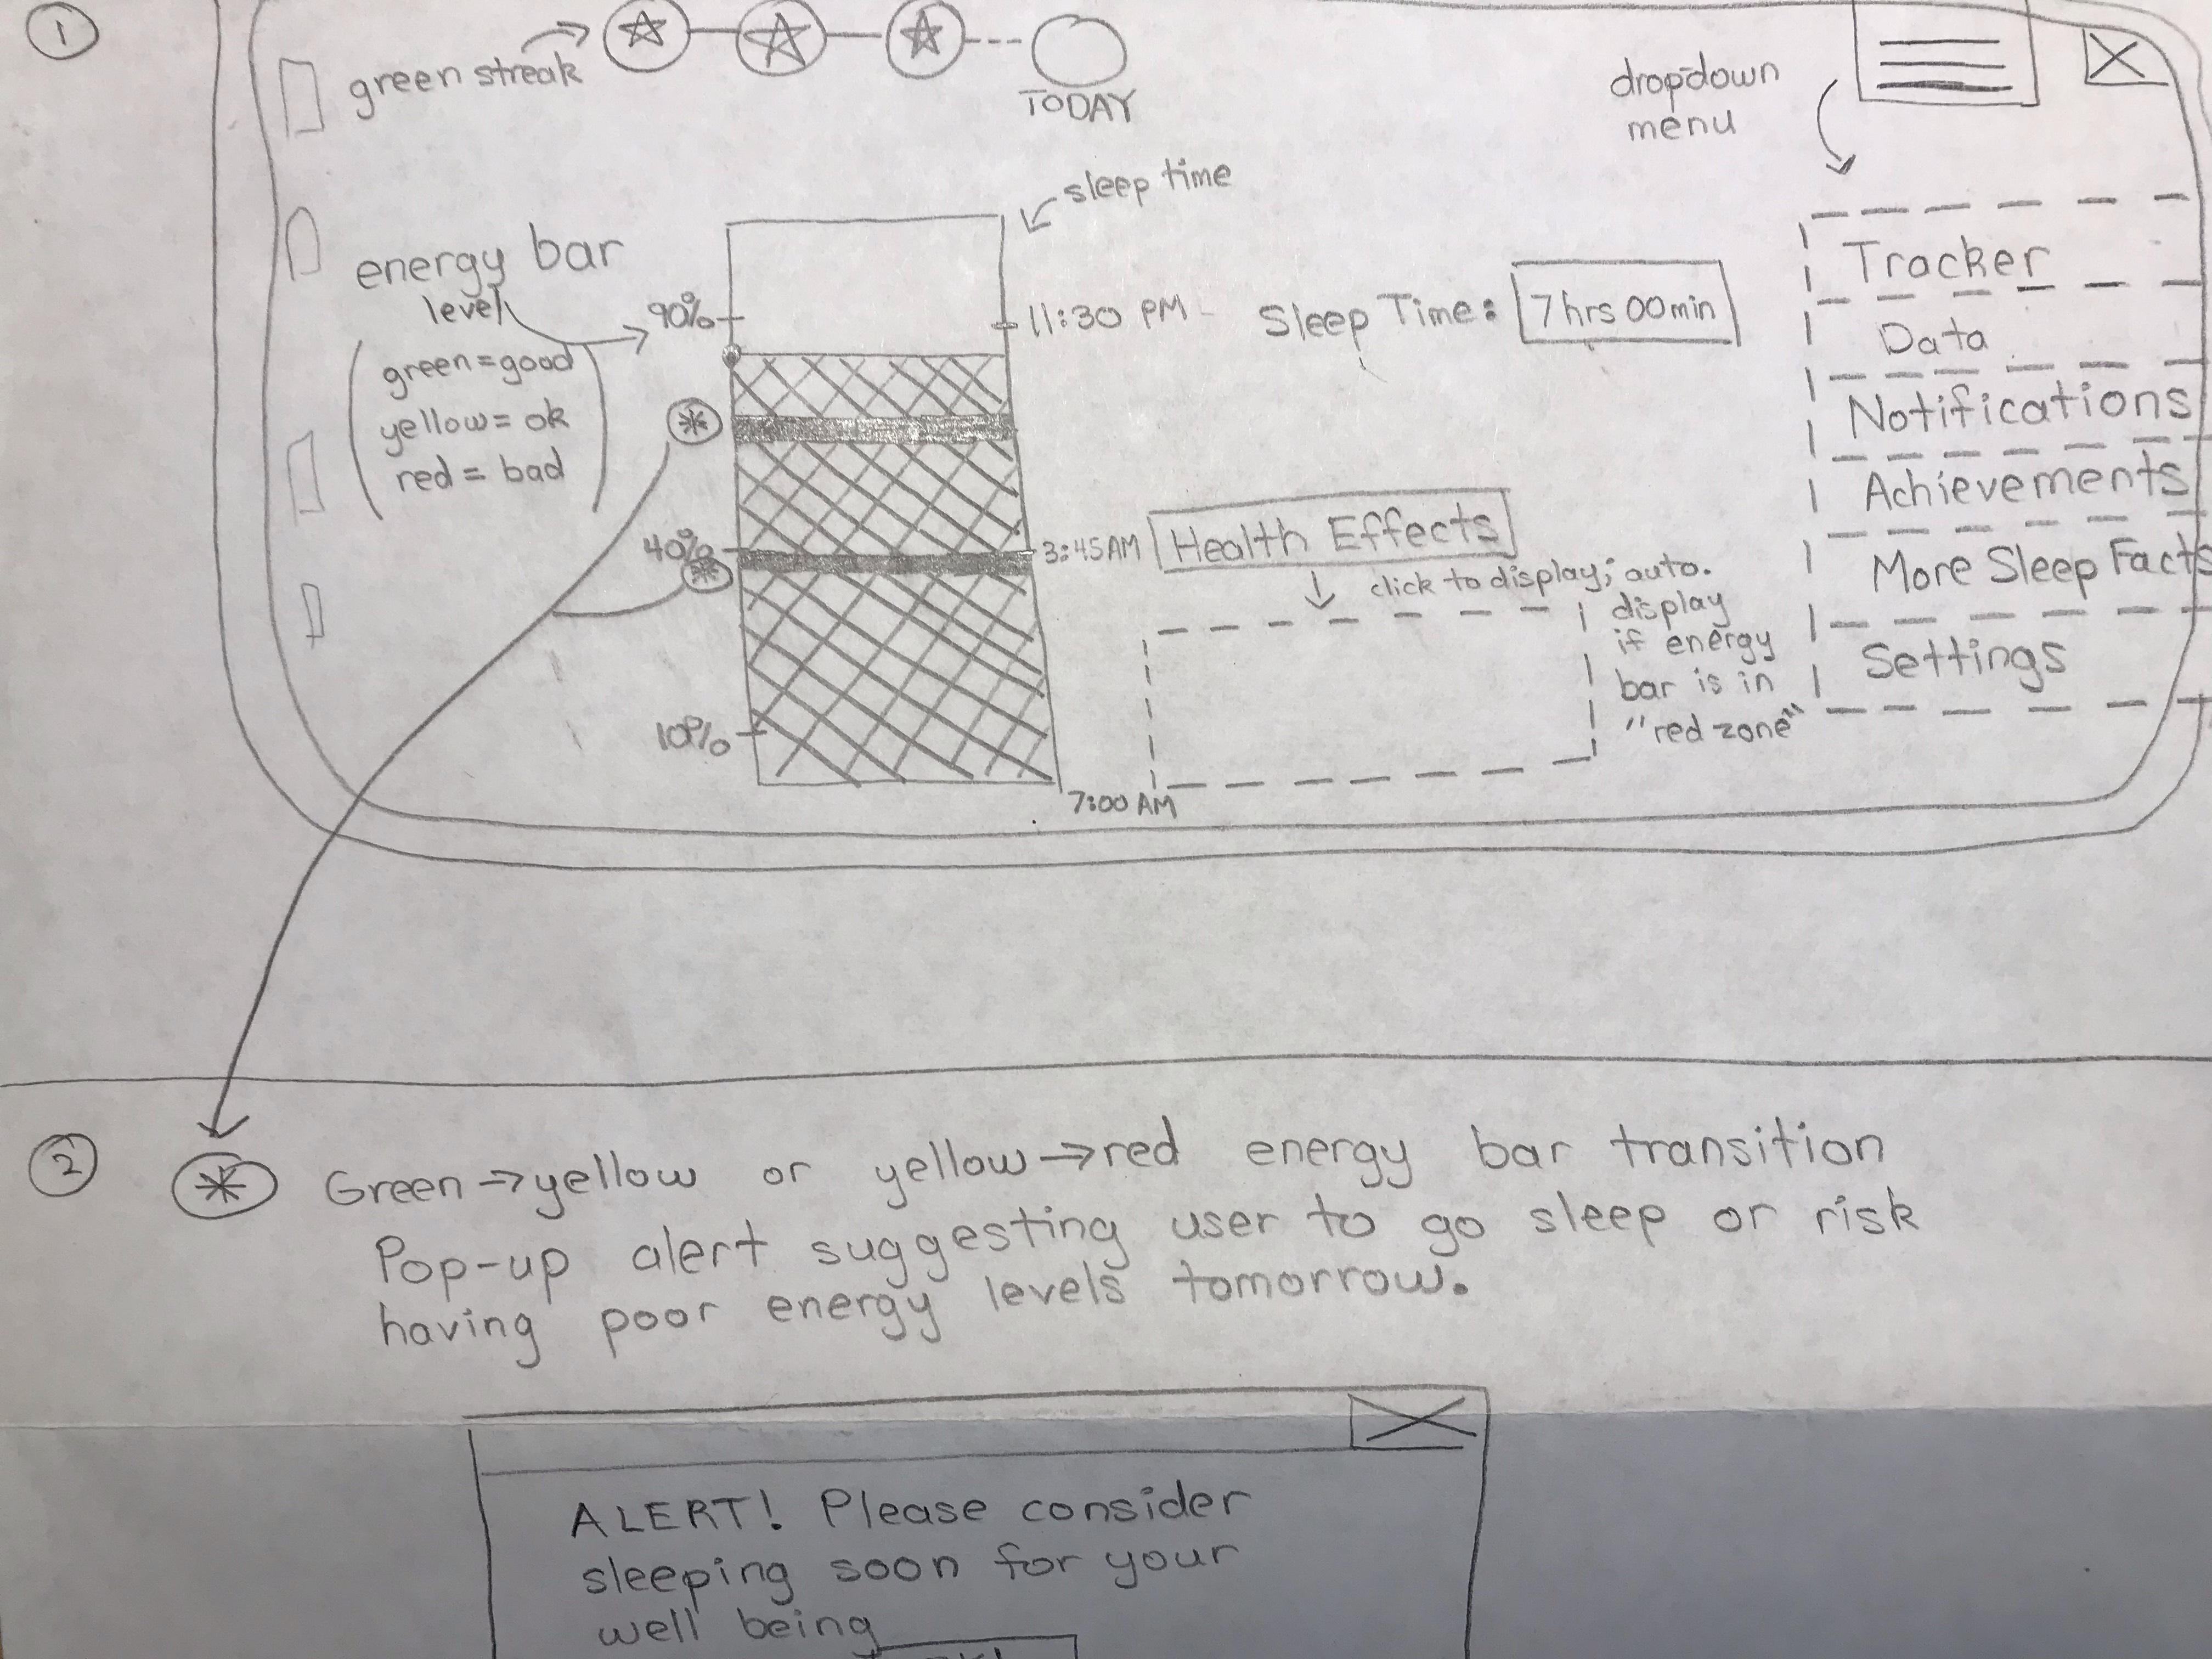 1
green streak
TODAY
dropdown
menu
sleep time
energy bar
level
(green=good
yellow=ok
red=bad)
90%
40%
10%
11:30 PM
3:45AM
7:00 AM
Sleep Time: 7hrs 00min
Health Effects
click to display; auto.
display
if energy
bar is in
"red zone"
Tracker
Data
Notifications
Achievements
More Sleep Facts
Settings
2
* Green→yellow or yellow→red energy bar transition
Pop-up alert suggesting user to go sleep or risk
having poor energy levels tomorrow.
ALERT! Please consider
sleeping soon for your
well being